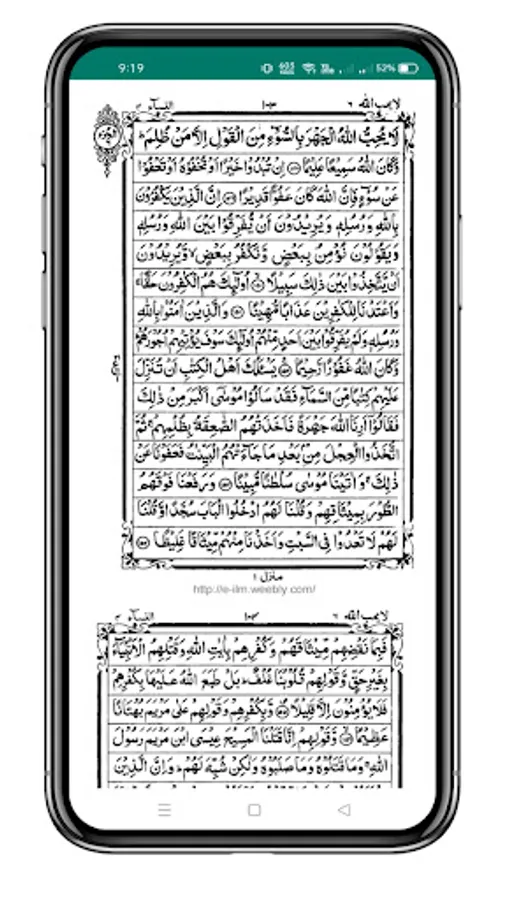 9:19
52%
لا یحب الله ٦
١٠٣
النسآء ٤
لَا يُحِبُّ اللّٰهُ الْجَهْرَ بِالسُّوْٓءِ مِنَ الْقَوْلِ اِلَّا مَنْ ظُلِمَ ؕ
وَكَانَ اللّٰهُ سَمِيْعًا عَلِيْمًا ﴿۱۴۸﴾ اِنْ تُبْدُوْا خَيْرًا اَوْ تُخْفُوْهُ اَوْ تَعْفُوْا
عَنْ سُوْٓءٍ فَاِنَّ اللّٰهَ كَانَ عَفُوًّا قَدِيْرًا ﴿۱۴۹﴾ اِنَّ الَّذِيْنَ يَكْفُرُوْنَ
بِاللّٰهِ وَرُسُلِهٖ وَيُرِيْدُوْنَ اَنْ يُّفَرِّقُوْا بَيْنَ اللّٰهِ وَرُسُلِهٖ
وَيَقُوْلُوْنَ نُؤْمِنُ بِبَعْضٍ وَّنَكْفُرُ بِبَعْضٍ ۙ وَّيُرِيْدُوْنَ
اَنْ يَّتَّخِذُوْا بَيْنَ ذٰلِكَ سَبِيْلًا ﴿۱۵۰﴾ اُولٰٓئِكَ هُمُ الْكٰفِرُوْنَ حَقًّا ۚ
وَاَعْتَدْنَا لِلْكٰفِرِيْنَ عَذَابًا مُّهِيْنًا ﴿۱۵۱﴾ وَالَّذِيْنَ اٰمَنُوْا بِاللّٰهِ
وَرُسُلِهٖ وَلَمْ يُفَرِّقُوْا بَيْنَ اَحَدٍ مِّنْهُمْ اُولٰٓئِكَ سَوْفَ يُؤْتِيْهِمْ اُجُوْرَهُمْ ؕ
وَكَانَ اللّٰهُ غَفُوْرًا رَّحِيْمًا ﴿۱۵۲﴾ يَسْئَلُكَ اَهْلُ الْكِتٰبِ اَنْ تُنَزِّلَ
عَلَيْهِمْ كِتٰبًا مِّنَ السَّمَآءِ فَقَدْ سَاَلُوْا مُوْسٰٓى اَكْبَرَ مِنْ ذٰلِكَ
فَقَالُوْٓا اَرِنَا اللّٰهَ جَهْرَةً فَاَخَذَتْهُمُ الصّٰعِقَةُ بِظُلْمِهِمْ ۚ ثُمَّ
اتَّخَذُوا الْعِجْلَ مِنْۢ بَعْدِ مَا جَآءَتْهُمُ الْبَيِّنٰتُ فَعَفَوْنَا عَنْ
ذٰلِكَ ۚ وَاٰتَيْنَا مُوْسٰى سُلْطٰنًا مُّبِيْنًا ﴿۱۵۳﴾ وَرَفَعْنَا فَوْقَهُمُ
الطُّوْرَ بِمِيْثَاقِهِمْ وَقُلْنَا لَهُمُ ادْخُلُوا الْبَابَ سُجَّدًا وَّقُلْنَا
لَهُمْ لَا تَعْدُوْا فِى السَّبْتِ وَاَخَذْنَا مِنْهُمْ مِّيْثَاقًا غَلِيْظًا ﴿۱۵۴﴾
منزل ١
http://e-ilm.weebly.com/
لا یحب الله ٦
١٠٤
النسآء ٤
فَبِمَا نَقْضِهِمْ مِّيْثَاقَهُمْ وَكُفْرِهِمْ بِاٰيٰتِ اللّٰهِ وَقَتْلِهِمُ الْاَنْۢبِيَآءَ
بِغَيْرِ حَقٍّ وَّقَوْلِهِمْ قُلُوْبُنَا غُلْفٌ ؕ بَلْ طَبَعَ اللّٰهُ عَلَيْهَا بِكُفْرِهِمْ
فَلَا يُؤْمِنُوْنَ اِلَّا قَلِيْلًا ﴿۱۵۵﴾ وَّبِكُفْرِهِمْ وَقَوْلِهِمْ عَلٰى مَرْيَمَ بُهْتَانًا
عَظِيْمًا ﴿۱۵۶﴾ وَّقَوْلِهِمْ اِنَّا قَتَلْنَا الْمَسِيْحَ عِيْسَى ابْنَ مَرْيَمَ رَسُوْلَ
اللّٰهِ ۚ وَمَا قَتَلُوْهُ وَمَا صَلَبُوْهُ وَلٰكِنْ شُبِّهَ لَهُمْ ؕ وَاِنَّ الَّذِيْنَ